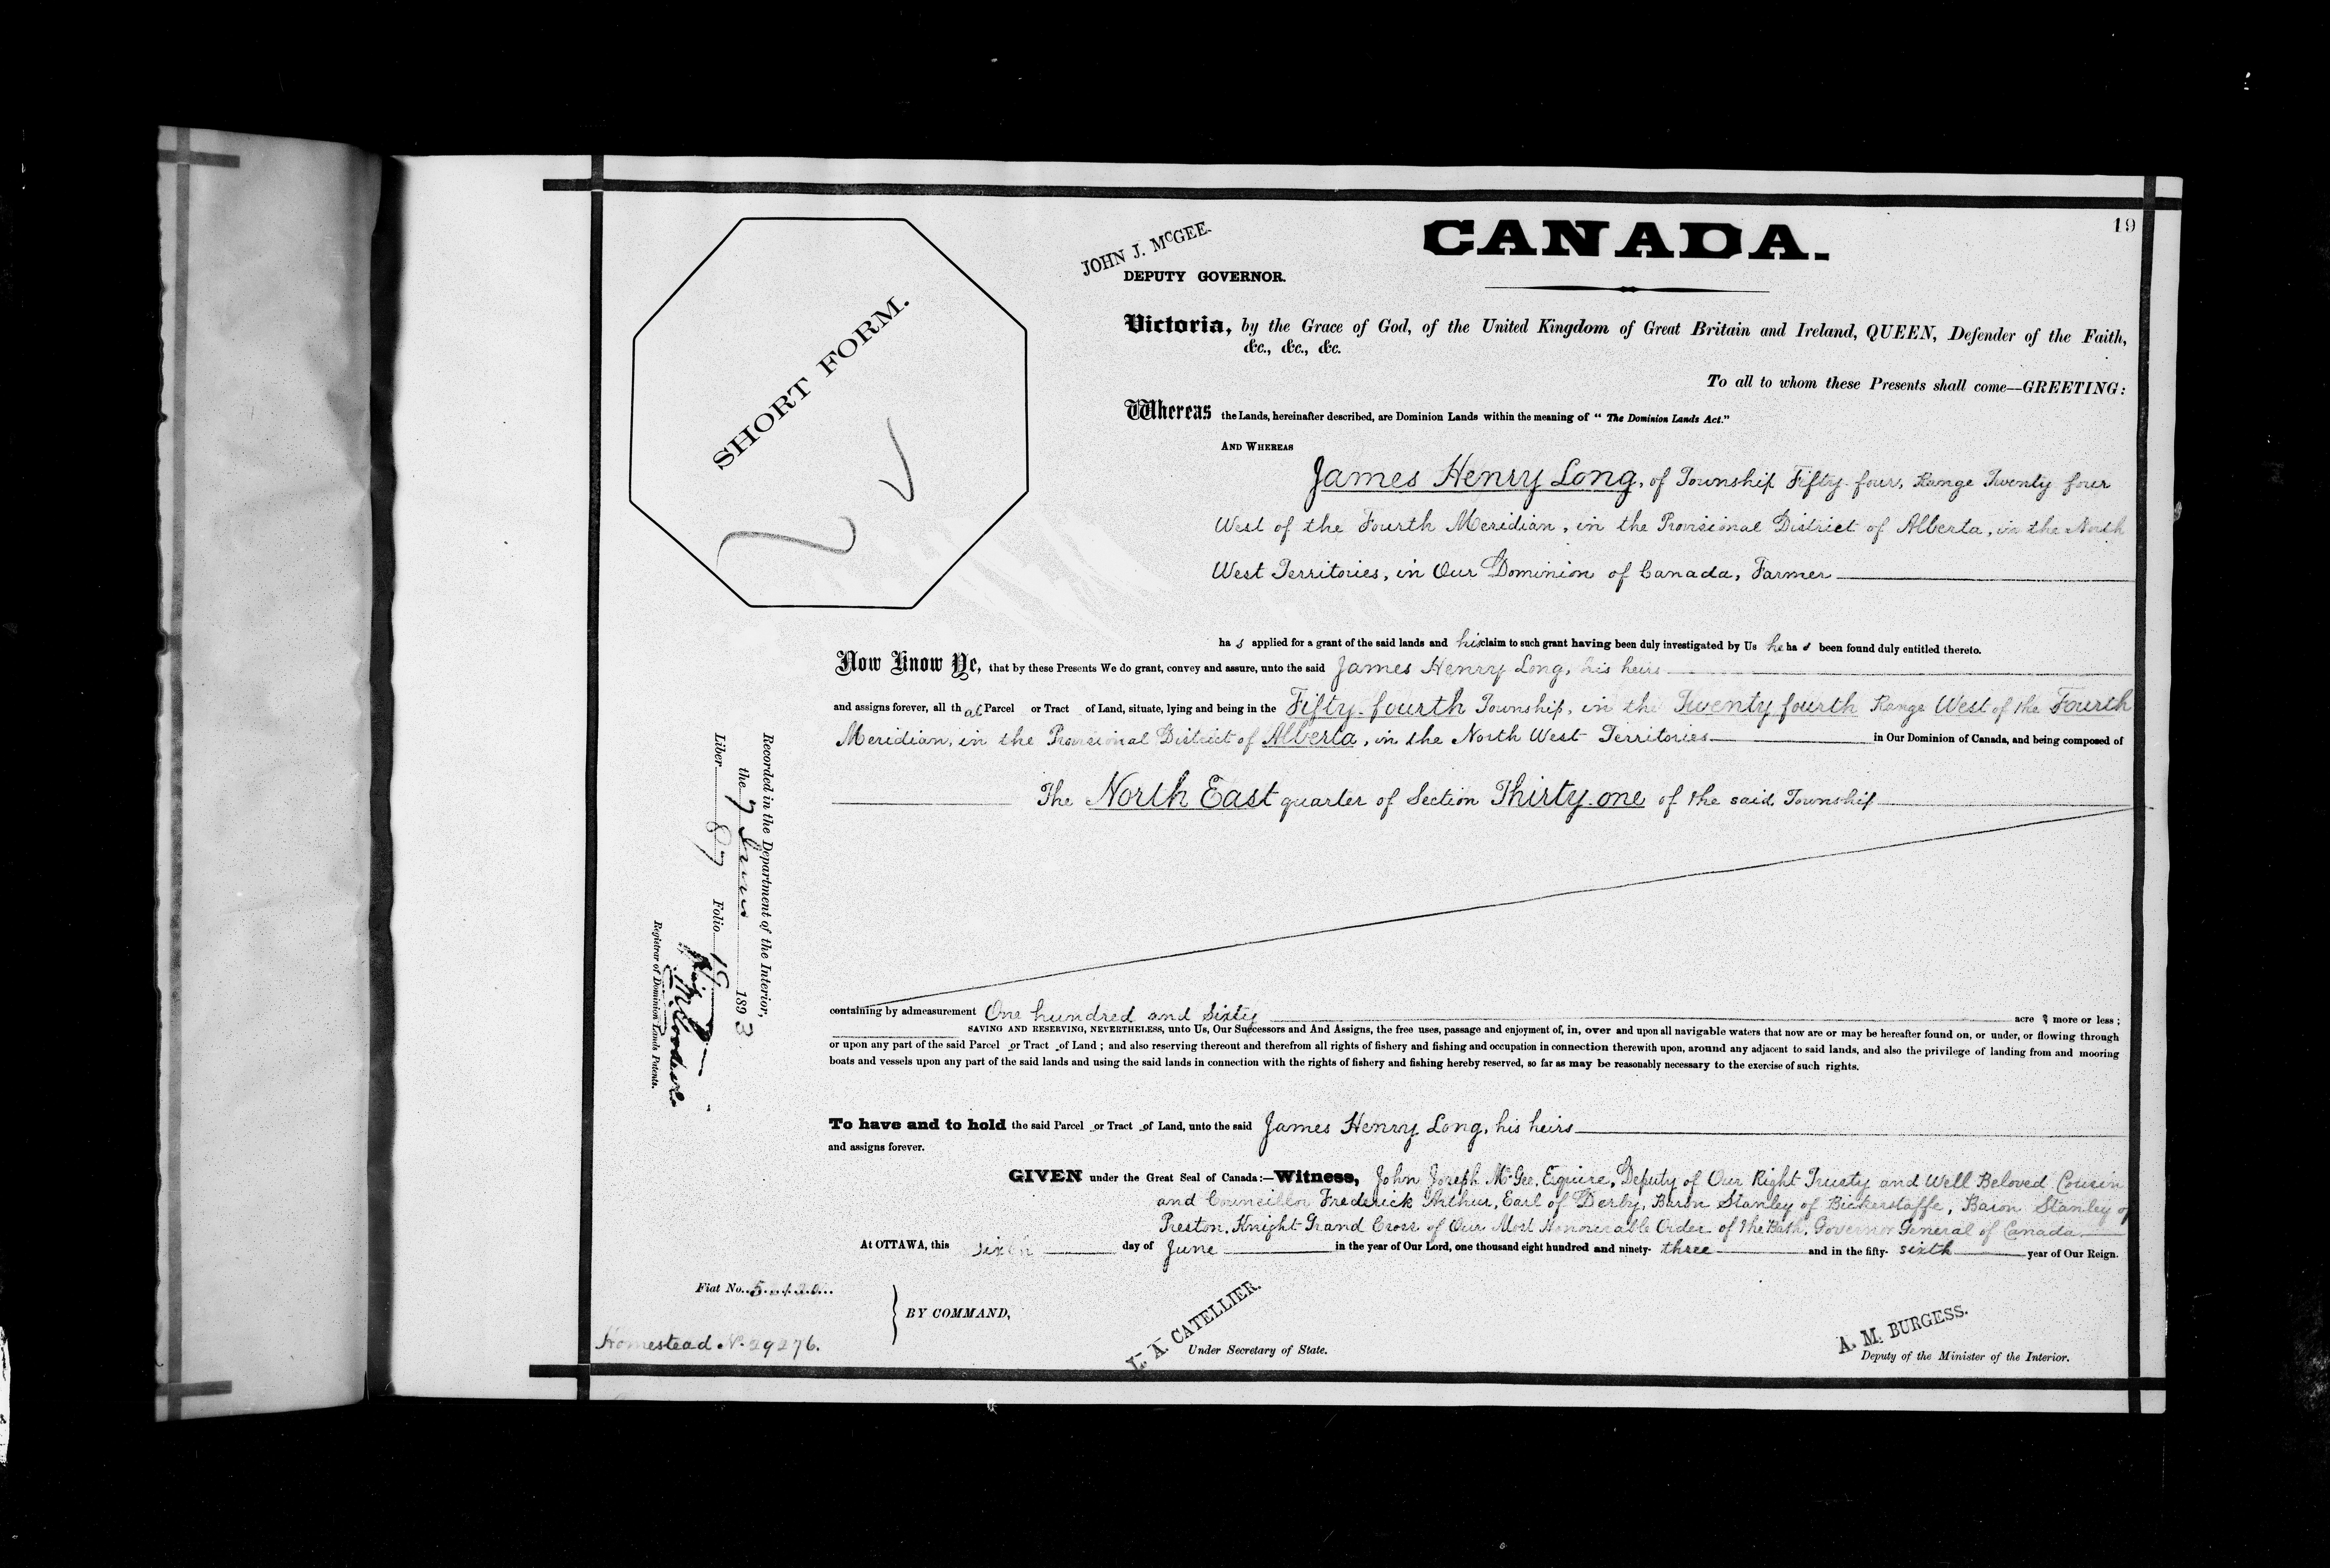 19
CANADA.
JOHN J. McGEE.
DEPUTY GOVERNOR.
SHORT FORM.
Victoria, by the Grace of God, of the United Kingdom of Great Britain and Ireland, QUEEN, Defender of the Faith,
&c., &c., &c.
To all to whom these Presents shall come—GREETING:
Whereas the Lands, hereinafter described, are Dominion Lands within the meaning of "The Dominion Lands Act."
AND WHEREAS
James Henry Long, of Township Fifty-four, Range Twenty four
West of the Fourth Meridian, in the Provisional District of Alberta, in the North
West Territories, in Our Dominion of Canada, Farmer
has applied for a grant of the said lands and his claim to such grant having been duly investigated by Us he has been found duly entitled thereto.
Now Know Ye, that by these Presents We do grant, convey and assure, unto the said James Henry Long, his heirs
and assigns forever, all that Parcel or Tract of Land, situate, lying and being in the Fifty-fourth Township, in the Twenty fourth Range West of the Fourth
Meridian, in the Provisional District of Alberta, in the North West Territories in Our Dominion of Canada, and being composed of
The North East quarter of Section Thirty-one of the said Township
containing by admeasurement One hundred and Sixty acres more or less;
SAVING AND RESERVING, NEVERTHELESS, unto Us, Our Successors and And Assigns, the free uses, passage and enjoyment of, in, over and upon all navigable waters that now are or may be hereafter found on, or under, or flowing through
or upon any part of the said Parcel or Tract of Land; and also reserving thereout and therefrom all rights of fishery and fishing and occupation in connection therewith upon, around any adjacent to said lands, and also the privilege of landing from and mooring
boats and vessels upon any part of the said lands and using the said lands in connection with the rights of fishery and fishing hereby reserved, so far as may be reasonably necessary to the exercise of such rights.
To have and to hold the said Parcel or Tract of Land, unto the said James Henry Long, his heirs
and assigns forever.
GIVEN under the Great Seal of Canada:—Witness, John Joseph McGee, Esquire, Deputy of Our Right Trusty and Well Beloved Cousin
and Councillor Frederick Arthur, Earl of Derby, Baron Stanley of Bickerstaffe, Baron Stanley of
Preston, Knight Grand Cross of Our Most Honourable Order of the Bath, Governor General of Canada
At OTTAWA, this sixth day of June in the year of Our Lord, one thousand eight hundred and ninety-three and in the fifty-sixth year of Our Reign.
Recorded in the Department of the Interior,
the 7 June 1893
Liber 87 Folio 19
Registrar of Dominion Lands Patents.
Fiat No.
BY COMMAND,
Homestead No. 29276.
L. A. CATELLIER.
Under Secretary of State.
A. M. BURGESS.
Deputy of the Minister of the Interior.